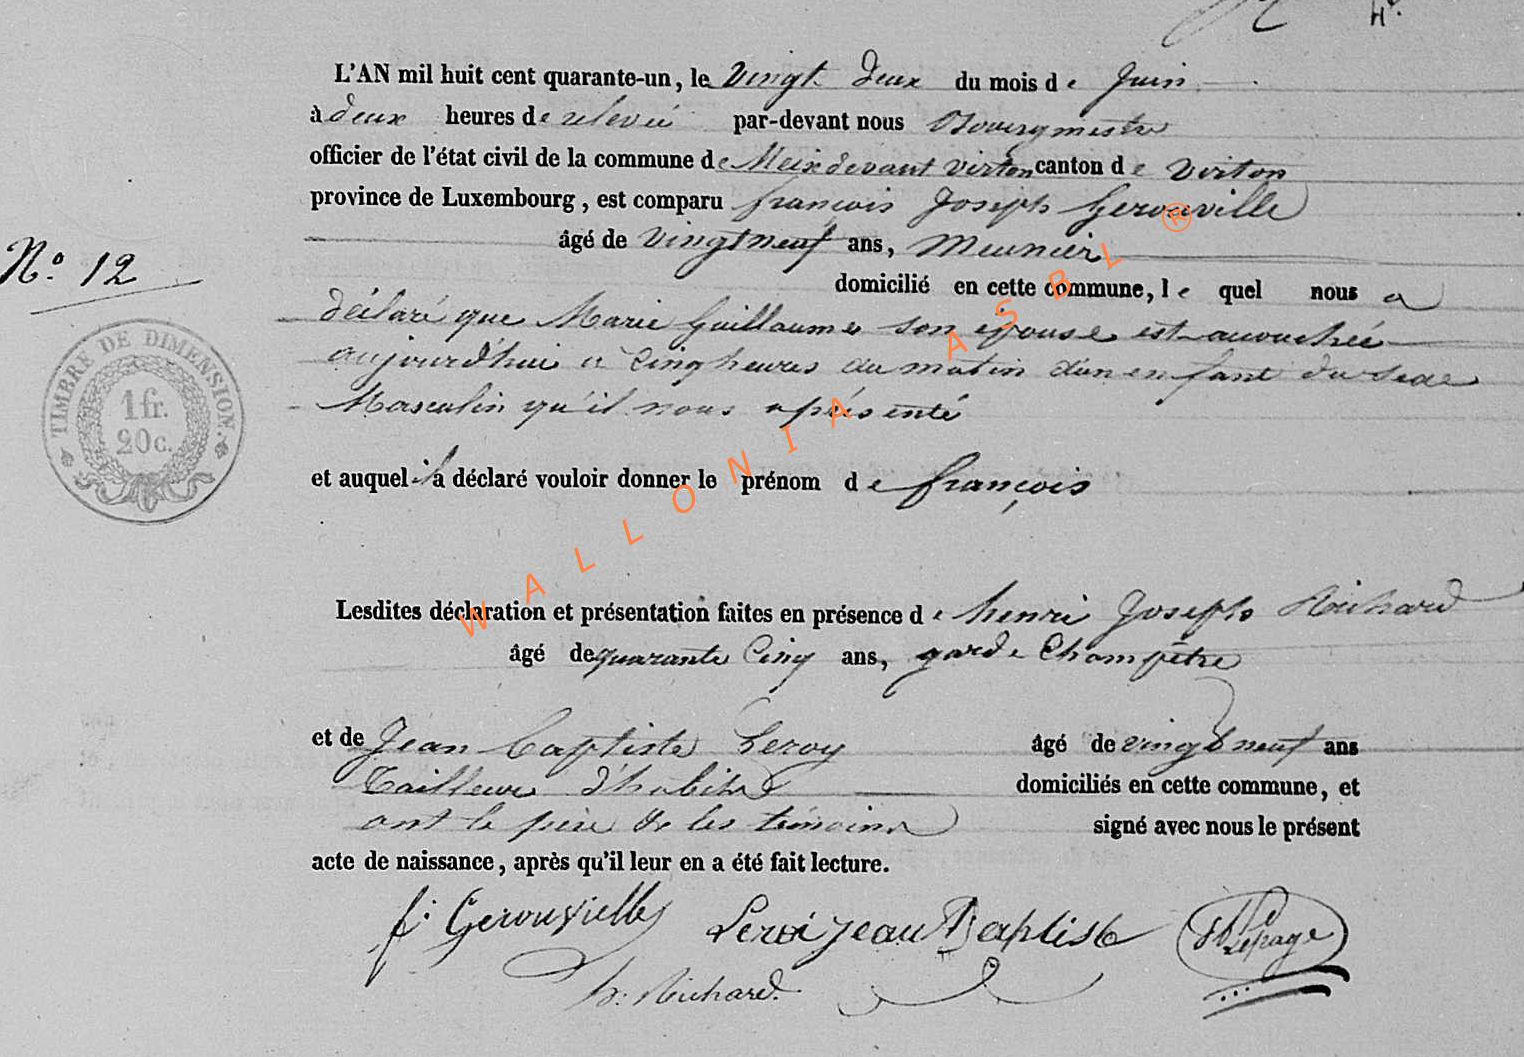 4e.
L'AN mil huit cent quarante-un, le Vingt Deux du mois de Juin
à deux heures de relevée par-devant nous Bourgmestre
officier de l'état civil de la commune de Meix devant virton canton de Virton
province de Luxembourg, est comparu françois Joseph Gerouville
âgé de vingt neuf ans, Meunier
N.° 12
domicilié en cette commune, le quel nous a
déclaré que Marie Guillaume son epouse est accouchée
aujourd'hui a Cinq heures du matin d'un enfant du sexe
Masculin qu'il nous a présenté
TIMBRE DE DIMENSION.
1 fr.
20 c.
et auquel il a déclaré vouloir donner le prénom de françois
Lesdites déclaration et présentation faites en présence de henri Joseph Richard
âgé de quarante Cinq ans, garde Champêtre
et de Jean Baptiste Leroy âgé de vingt neuf ans
Tailleur d'habits domiciliés en cette commune, et
ont le père & les témoins signé avec nous le présent
acte de naissance, après qu'il leur en a été fait lecture.
f: Gerouville Leroi jean Baptiste Lepage
h: Richard.
WALLONIA ASBL ®